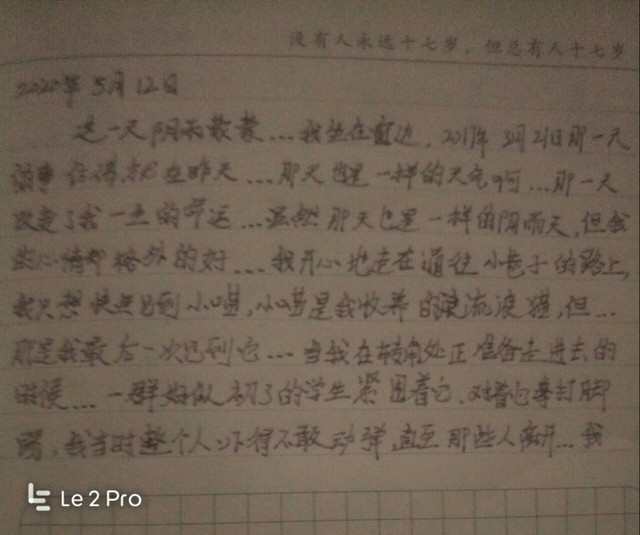 没有人永远十七岁，但总有人十七岁
2020年5月12日
这一天阴雨蒙蒙...我坐在窗边，2017年3月21日那一天
的事 记得就在昨天...那天也是一样的天气啊...那一天
改变了我一生的命运...虽然那天也是一样的阴雨天，但我
的心情却格外的好...我开心地走在通往小巷子的路上，
我只想快点见到小喵，小喵是我收养的流浪猫，但...
那是我最后一次见到它...当我在转角处正准备走进去的
时候...一群好似初了的学生紧围着它，对着它拳打脚
踢，我当时整个人吓得不敢动弹，直至那些人离开...我
Le 2 Pro